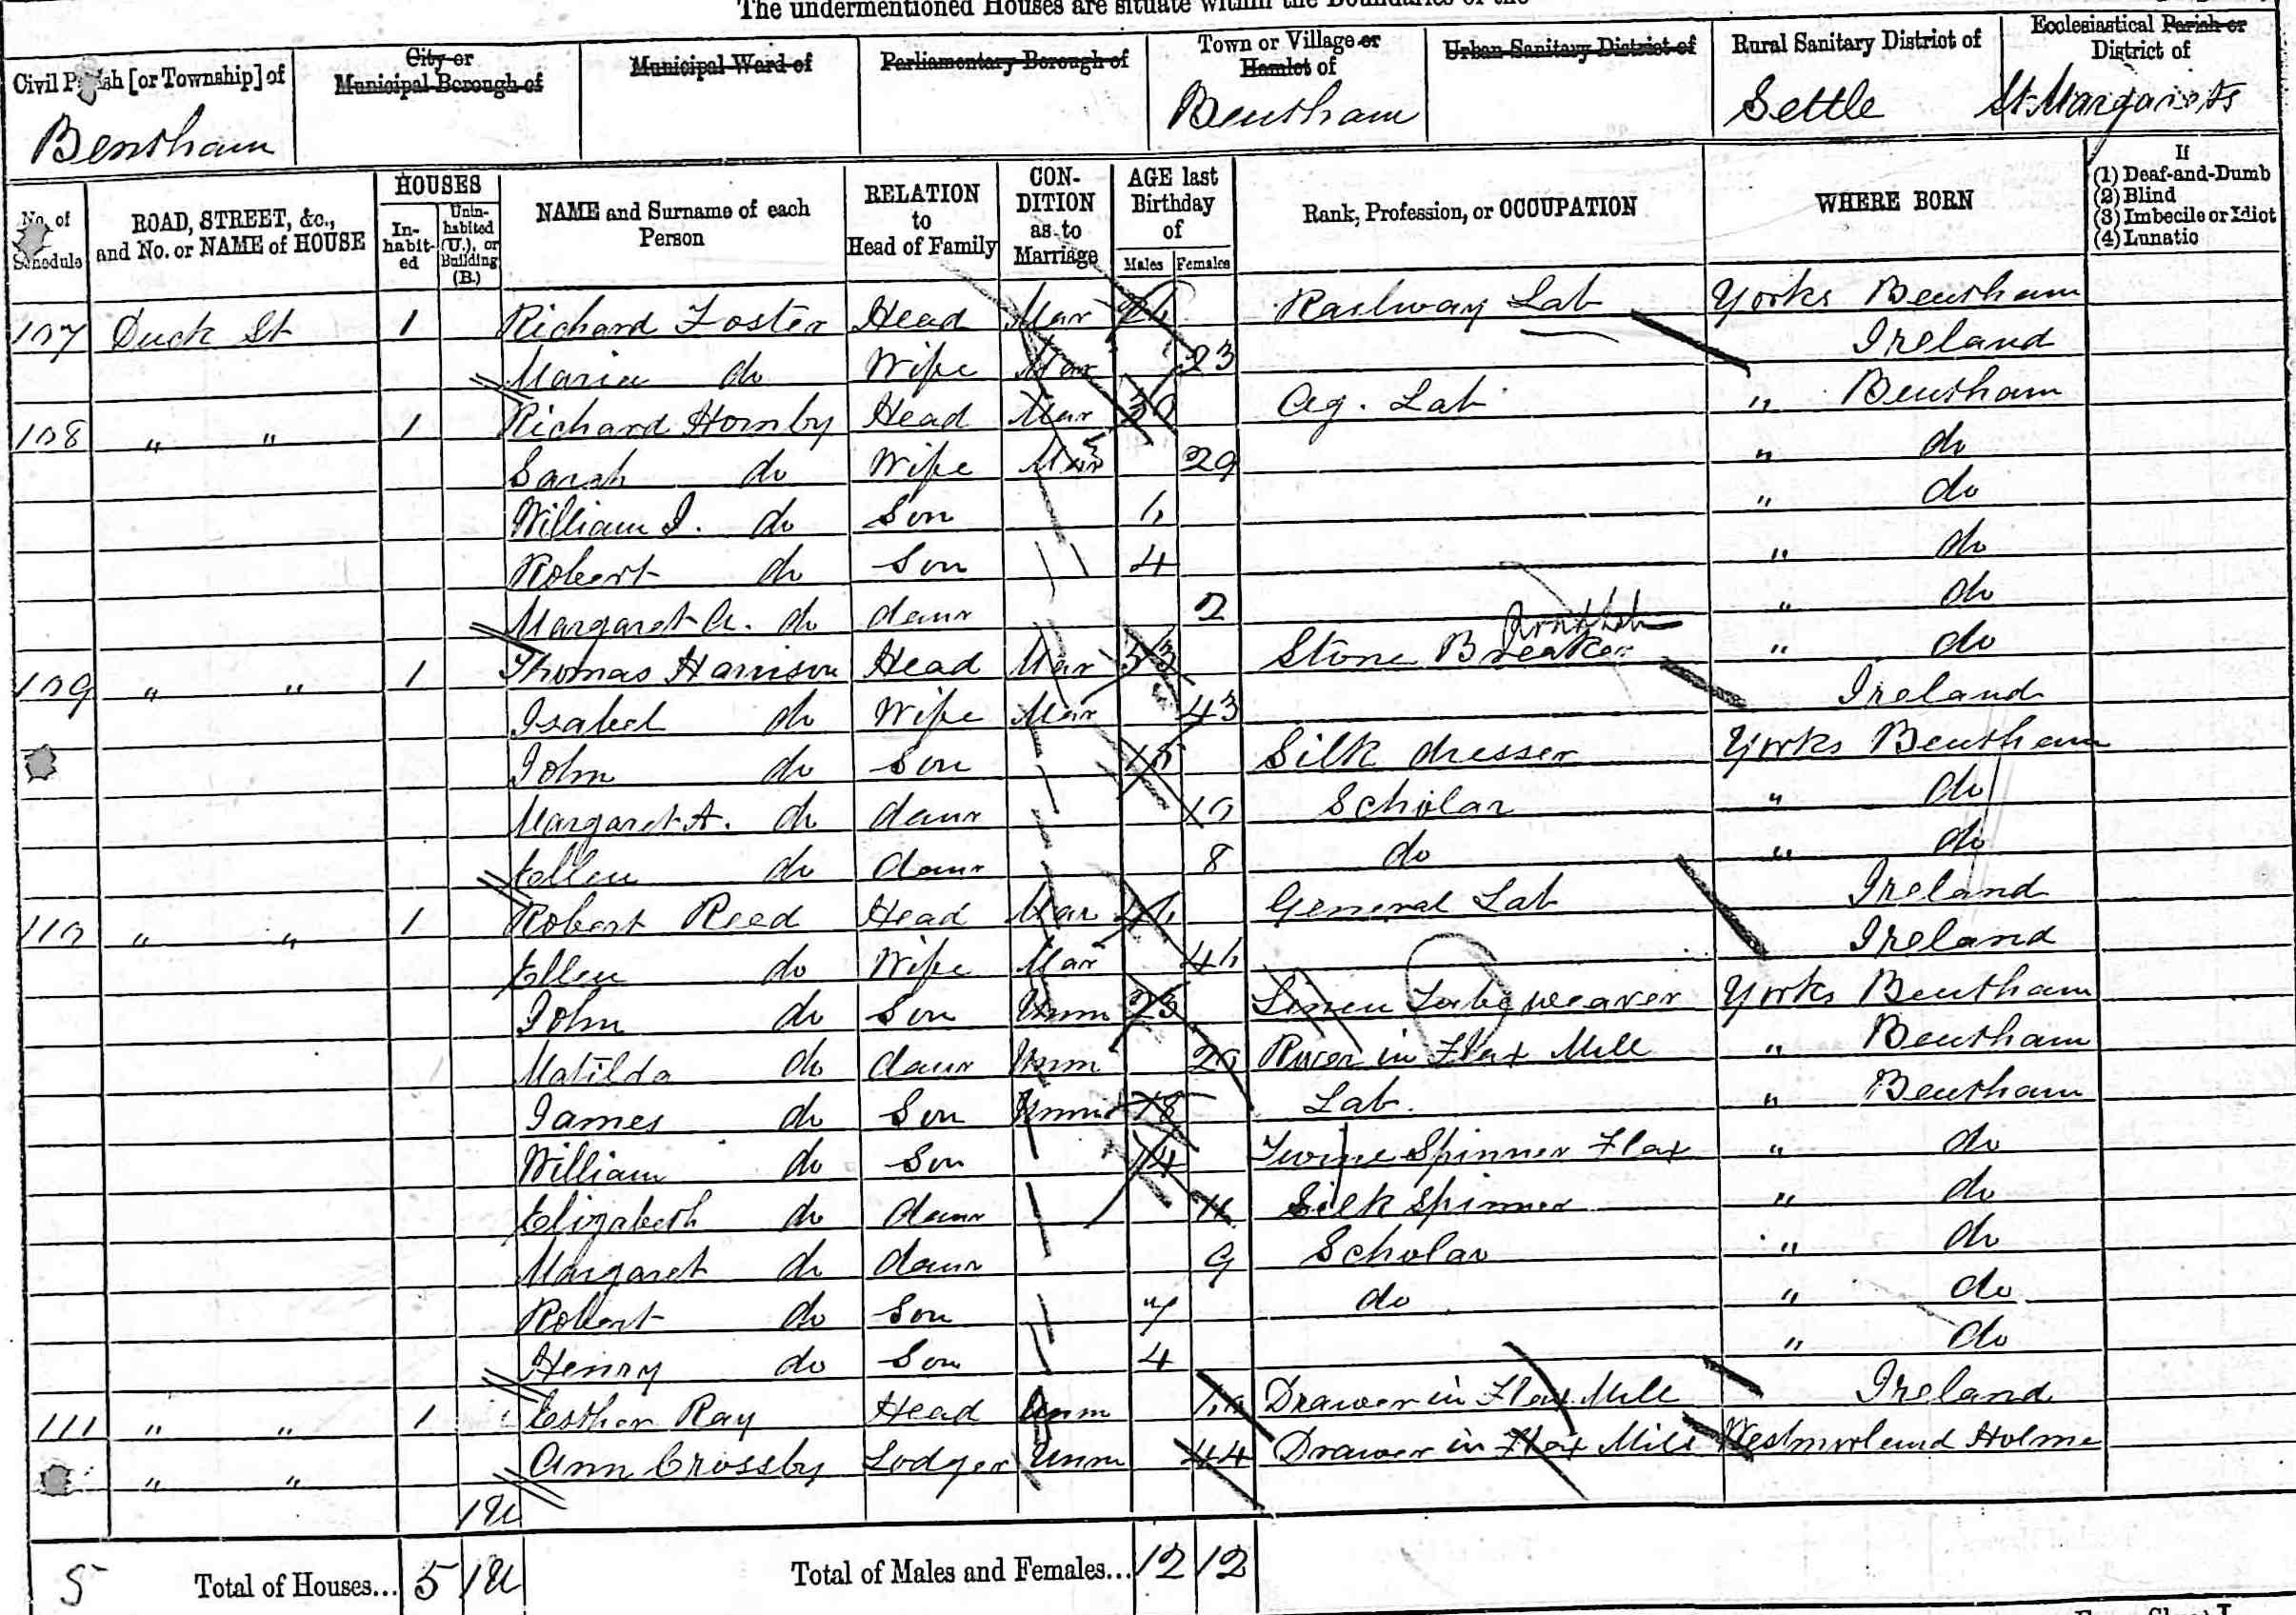 The undermentioned Houses are situate within the Boundaries of the
Civil Parish [or Township] of City or Municipal Borough of Municipal Ward of Parliamentary Borough of Town or Village or Hamlet of Urban Sanitary District of Rural Sanitary District of Ecclesiastical Parish or District of
Bentham Bentham Settle St Margarets
No. of Schedule ROAD, STREET, &c., and No. or NAME of HOUSE HOUSES Inhabited Uninhabited (U.), or Building (B.) NAME and Surname of each Person RELATION to Head of Family CONDITION as to Marriage AGE last Birthday of Males Females Rank, Profession, or OCCUPATION WHERE BORN If (1) Deaf-and-Dumb (2) Blind (3) Imbecile or Idiot (4) Lunatic
107 Duck St 1 Richard Foster Head Mar Railway Lab Yorks Bentham
Maria do Wife Mar 23 Ireland
108 " " 1 Richard Hornby Head Mar 30 Ag. Lab " Bentham
Sarah do Wife Mar 29 " do
William J. do Son 6 " do
Robert do Son 4 " do
Margaret A. do daur 2 " do
109 " " 1 Thomas Harrison Head Mar 53 Stone Breaker " do
Isabel do Wife Mar 43 Ireland
John do Son 15 Silk dresser Yorks Bentham
Margaret A. do daur 10 Scholar " do
Ellen do daur 8 do " do
110 " " 1 Robert Reed Head Mar 46 General Lab Ireland
Ellen do Wife Mar 46 Ireland
John do Son Unm 23 Linen weaver Yorks Bentham
Matilda do daur Unm 20 in Flax Mill " Bentham
James do Son Unm 18 Lab. " Bentham
William do Son 14 Twine Spinner Flax " do
Elizabeth do daur Silk Spinner " do
Margaret do daur 9 Scholar " do
Robert do Son 7 do " do
Henry do Son 4 " do
111 " " 1 Esther Ray Head Unm 60 Drawer in Flax Mill Ireland
" " Ann Crossby Lodger Unm 44 Drawer in Flax Mill Westmorland Holme
1U
5 Total of Houses... 5 1U Total of Males and Females... 12 12